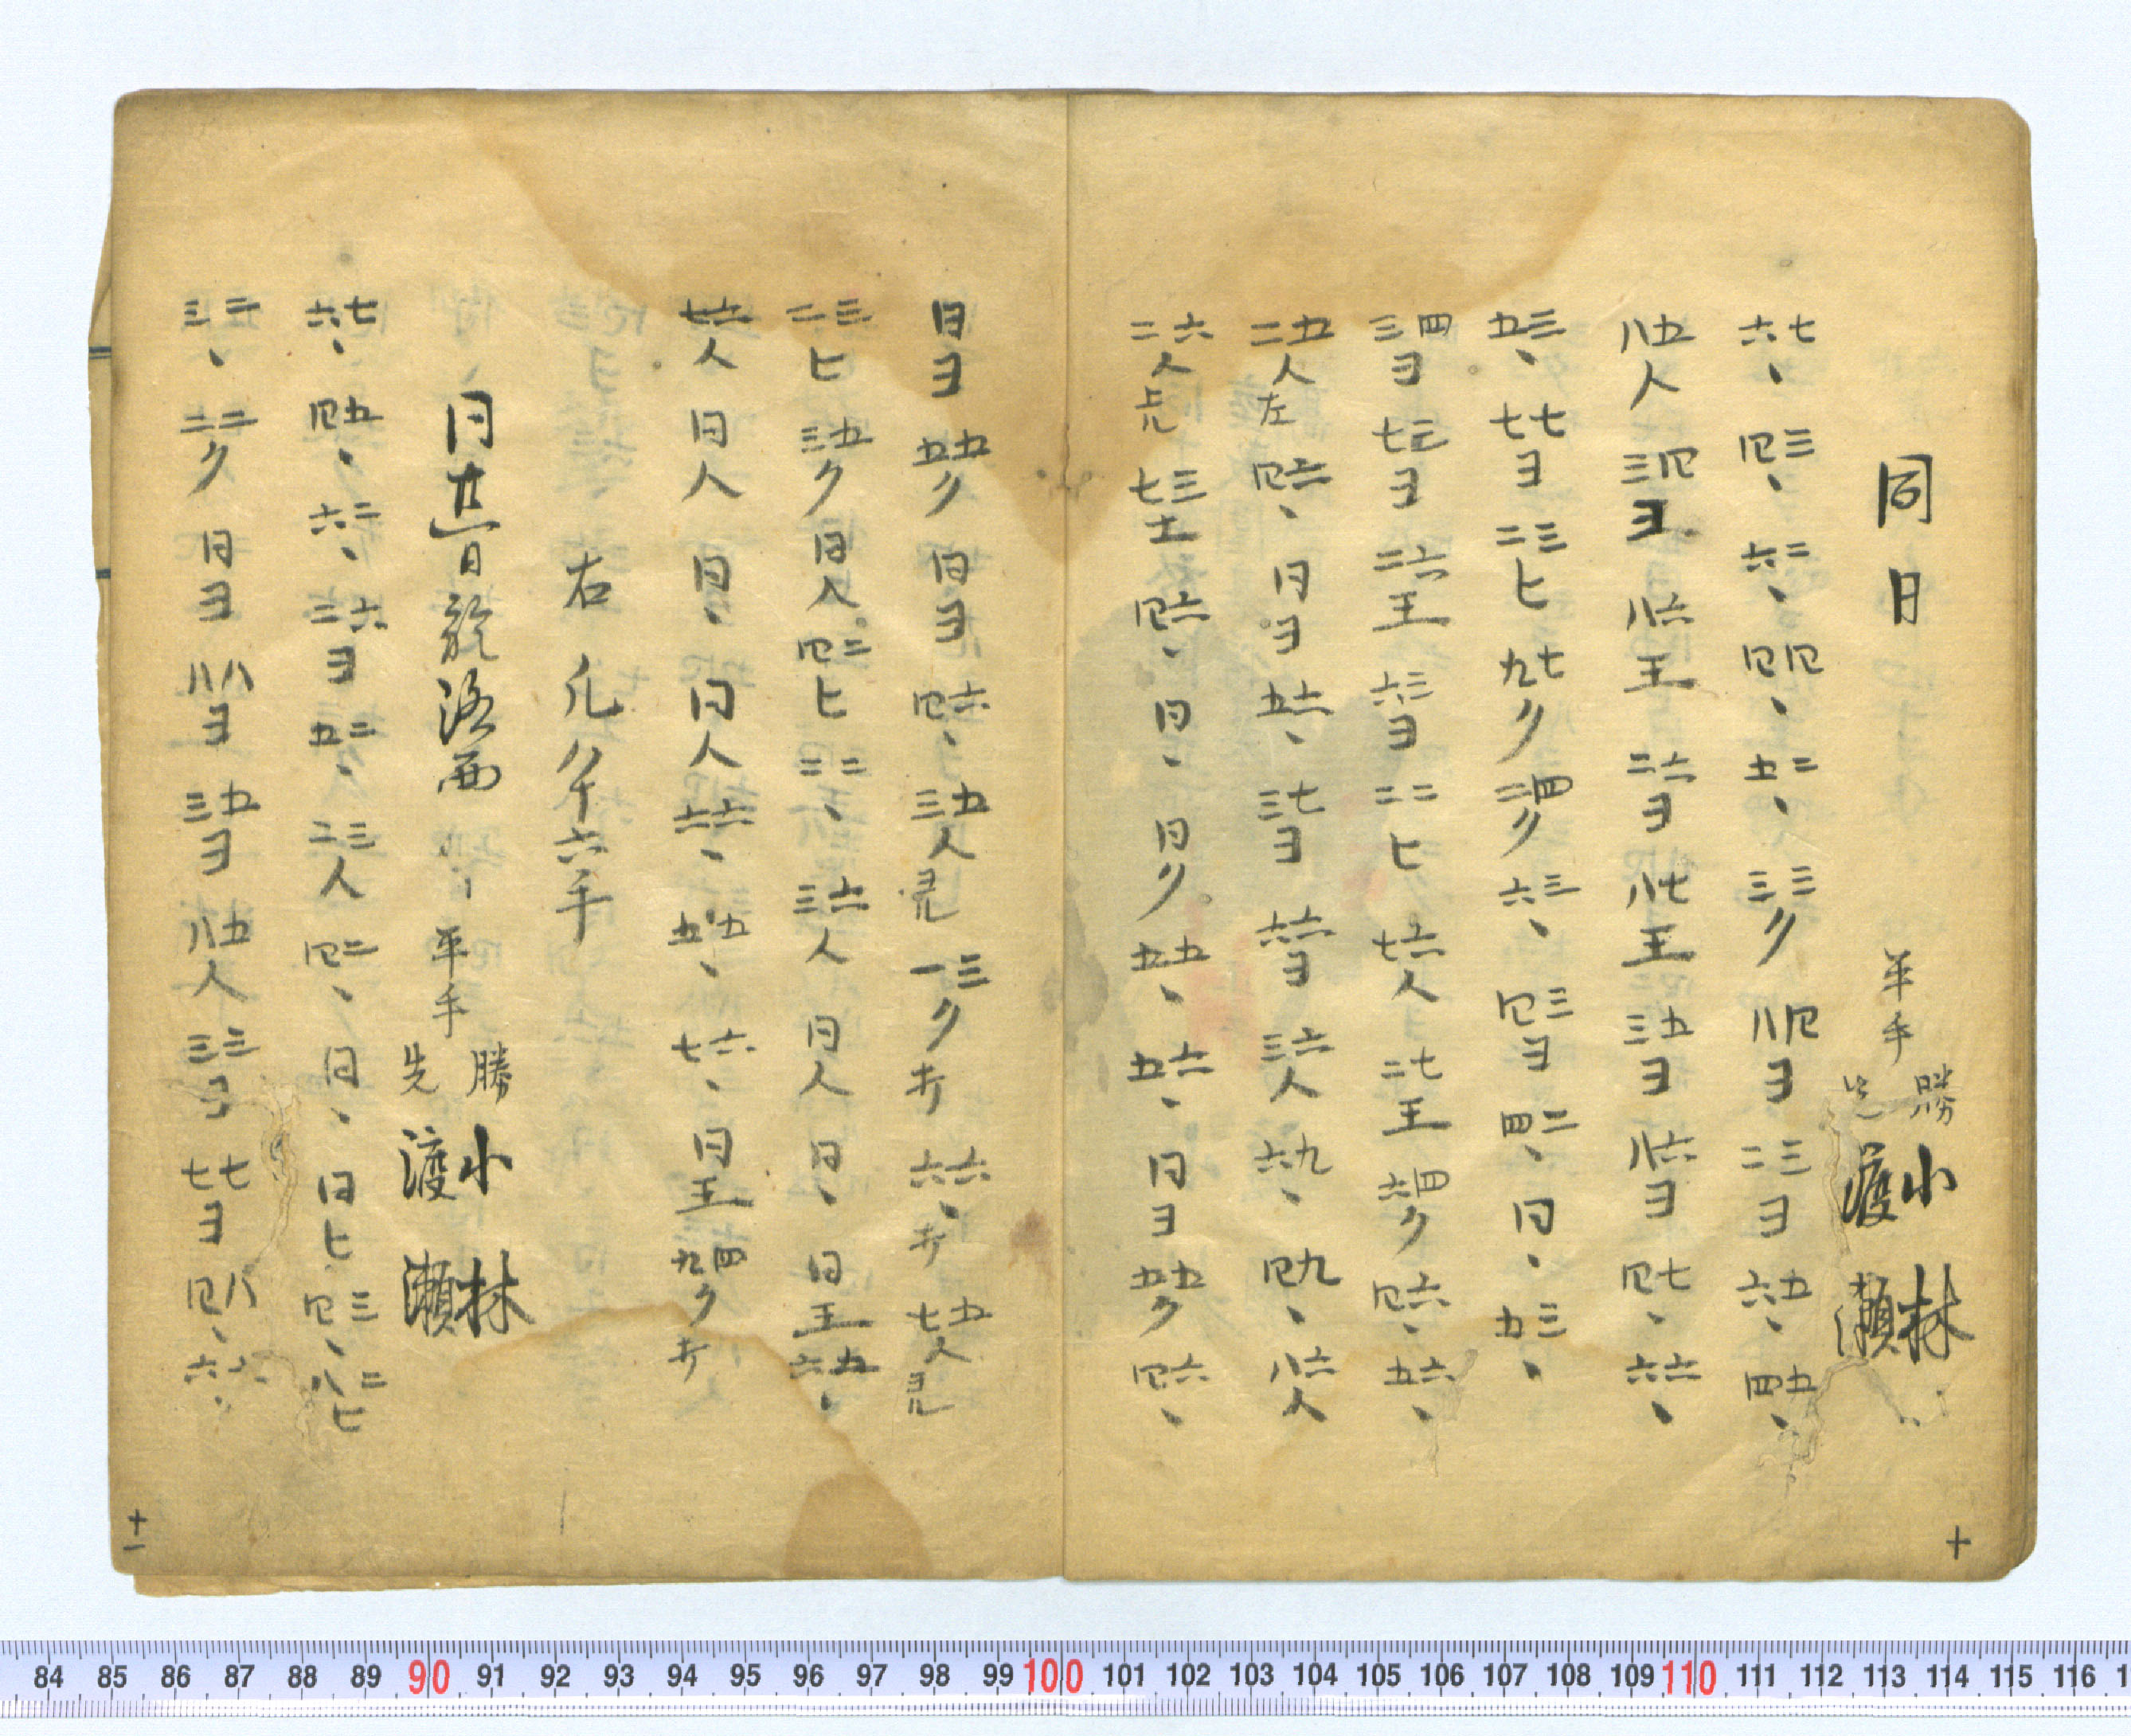 同日 平手 勝 小林
先 渡瀬
七六、 三四、 二六、 四四、 二五、 三三ク 四八ヨ 三二ヨ 五六、 五四、
五八人 四三ヨ 六八王 六二ヨ 七八王 五三ヨ 六八ヨ 七四、 六六、
三五、 七七ヨ 三二ヒ 七九ク 四二ク 三六、 三四ヨ 二四、 同、 三五、
四三ヨ 三七ヨ 六二王 三六ヨ 二二ヒ 六七人 七二王 四六ク 六四、 六五、
五二人左 六四、 同ヨ 六五、 七三ヨ 六六ヨ 六三人 九六、 九四、 六八人
六二人上 三七王 六四、 同、 同ク 五五、 六五、 同ヨ 五五ク 六四、
十
同ヨ 五五ク 同ヨ 六四、 五三人 三一ク打 六六、打 五七人
三二ヒ 五三ク 同人 二四ヒ 二二、 六三人 同人 同、 同王 五六、
六七人 同人 同、 同人 六六、 五五、 六七、 同王 四九ク打
右凡八十六手
同廿一日於洛西 平手 勝 小林
先 渡瀬
七六、 五四、 二六、 六二ヨ 二五、 三二人 二四、 同、 同ヒ 三四、 二八ヒ
二三、 二二ク 同ヨ 八八ヨ 五三ヨ 五八人 三三ヨ 七七ヨ 八四、 六六、
十一